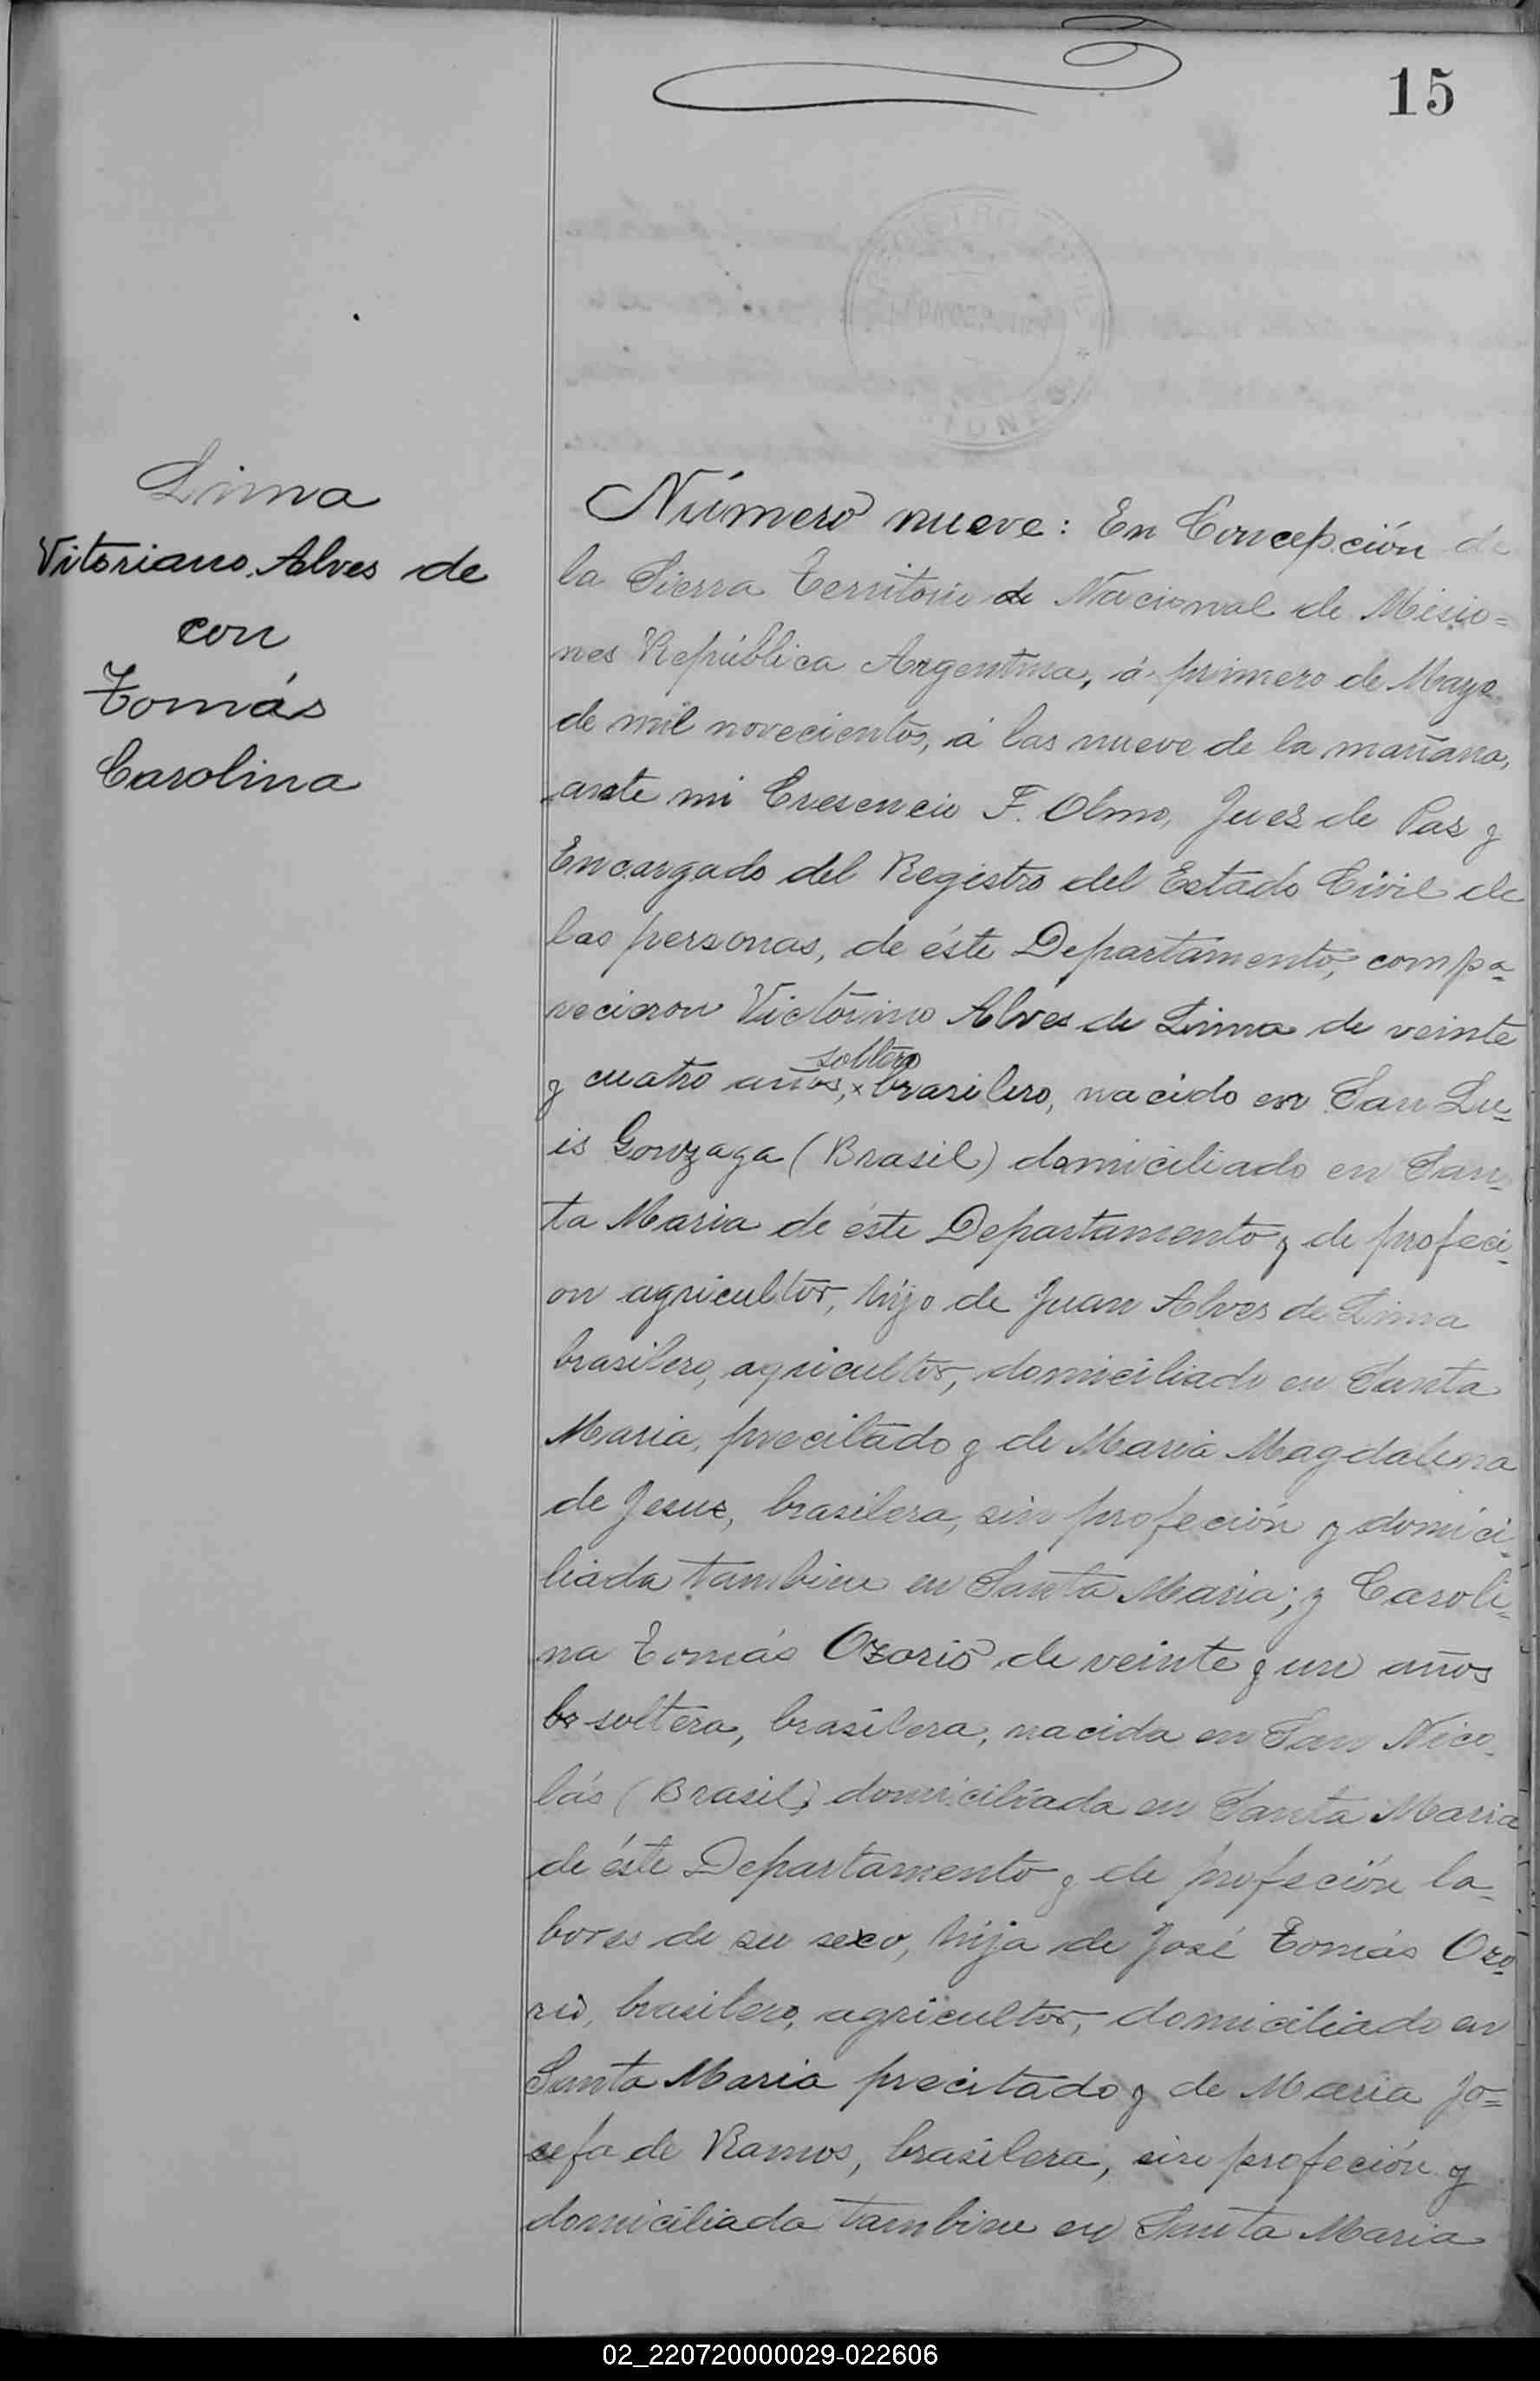 15
Lima
Vitoriano Alves de
con
Tomás
Carolina
Número nueve: En Concepción de
la Sierra Territorio de Nacional de Misio=
nes República Argentina, á primero de Mayo
de mil novecientos, á las nueve de la mañana,
ante mi Cresencio F. Olmo, Juez de Paz y
Encargado del Registro del Estado Civil de
las personas, de éste Departamento, compa=
recieron Victorino Alves de Lima de veinte
soltero
y cuatro años, x brasilero, nacido en San Lu=
is Gonzaga (Brasil) domiciliado en San=
ta Maria de éste Departamento y de profeci=
on agricultor, hijo de Juan Alves de Lima
brasilero, agricultor, domiciliado en Santa
Maria, precitado y de Maria Magdalena
de Jesus, brasilera, sin profeción y domici=
liada tambien en Santa Maria; y Caroli=
na Tomás Ozorio de veinte y un años
br soltera, brasilera, nacida en San Nico=
lás (Brasil) domiciliada en Santa Maria
de éste Departamento y de profeción la=
bores de su sexo, hija de José Tomás Ozo=
rio, brasilero, agricultor, domiciliado en
Santa Maria precitado y de Maria Jo=
sefa de Ramos, brasilera, sin profeción y
domiciliada tambien en Santa Maria
02_220720000029-022606